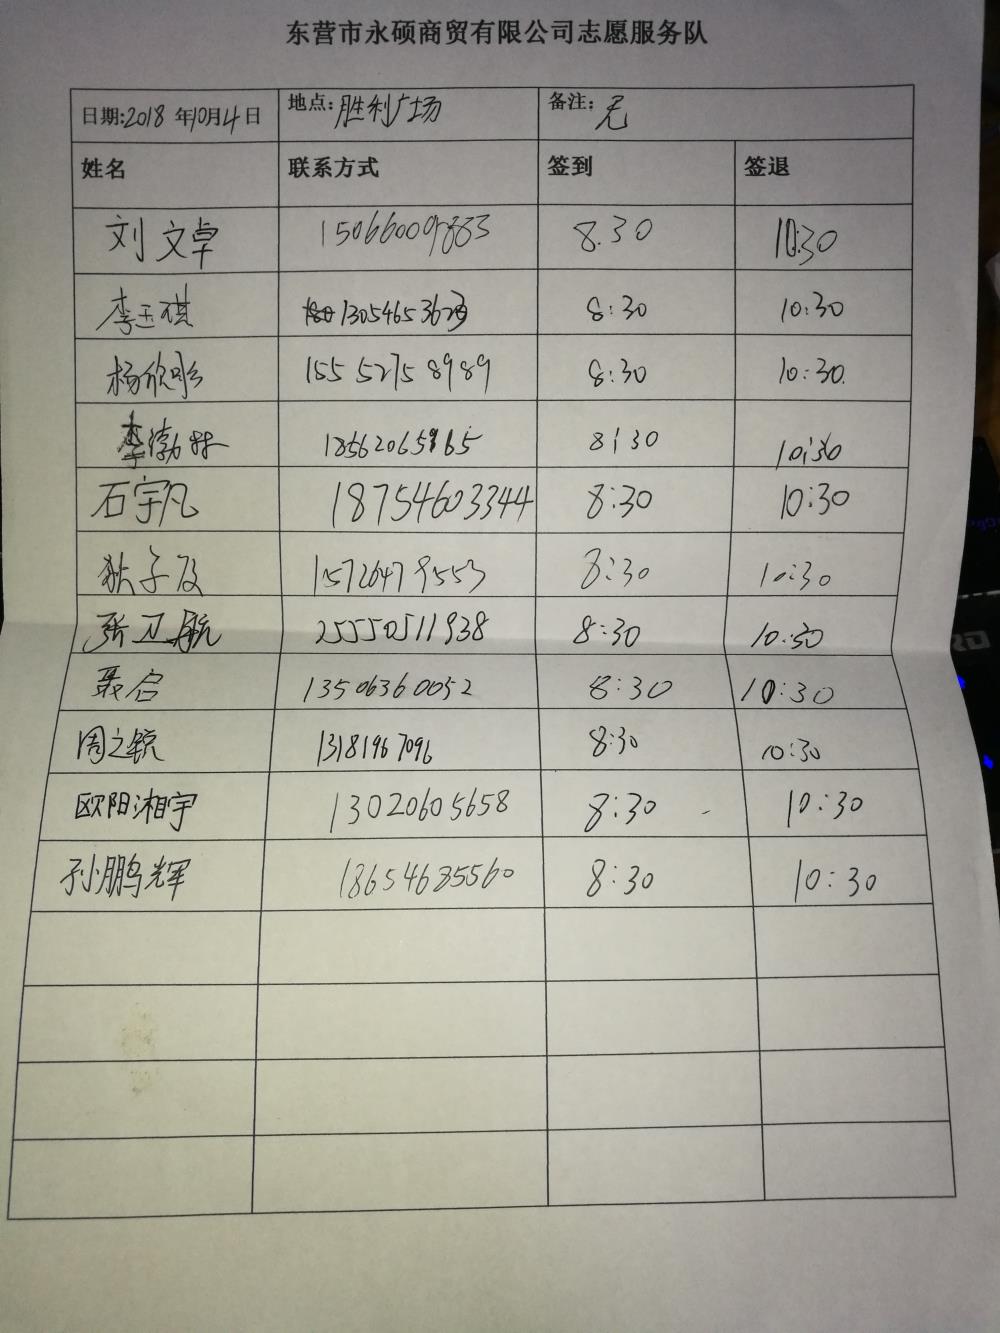 东营市永硕商贸有限公司志愿服务队
日期:2018 年10月4日 地点:胜利广场 备注:无
姓名 联系方式 签到 签退
刘文卓 15066009883 8.30 10:30
李玉琪 13054653623 8:30 10:30
杨欣彤 155 5275 8989 8:30 10:30.
李渤林 18562065965 8:30 10:30
石宇凡 18754603344 8:30 10:30
狄子及 15726479553 8:30 10:30
张卫航 25550511938 8:30 10:30
聂启 13506360052 8:30 10:30
周之毓 13181967096 8:30 10:30
欧阳湘宇 13020605658 8:30 10:30
孙鹏辉 18654685560 8:30 10:30